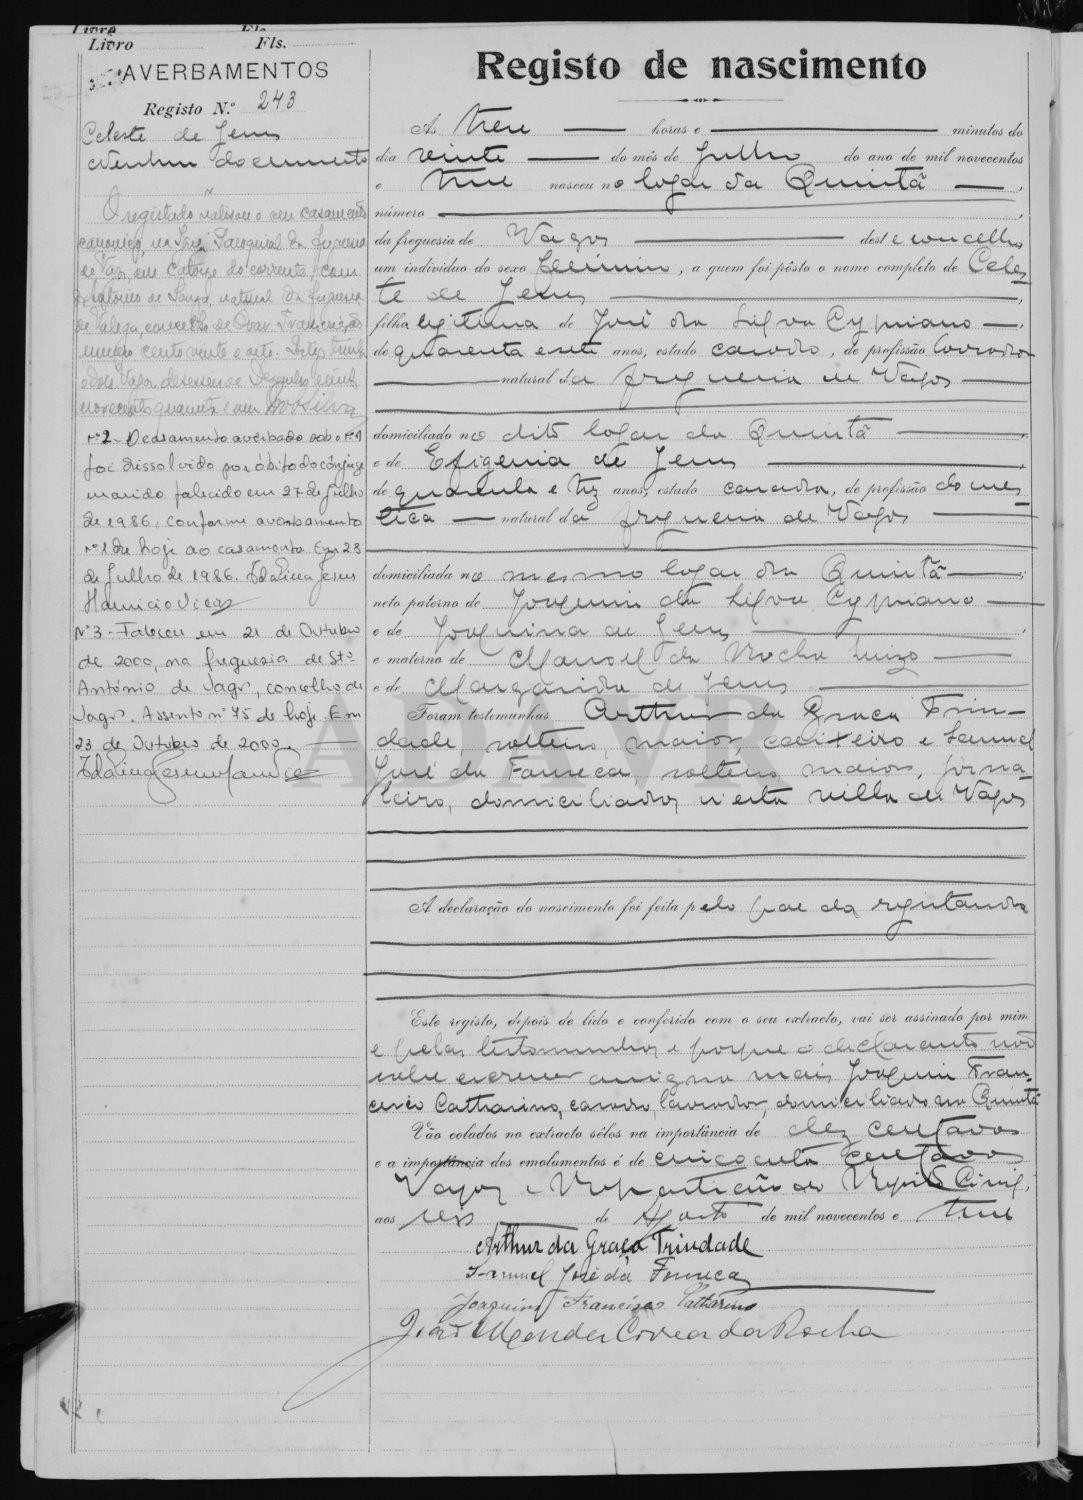 Livro Fls.
AVERBAMENTOS
Registo N.º 243
Celeste de Jesus
Nenhum documento
O registado realisou o seu casamento
canonico, na Igreja Paroquial da freguesia
de Vagos, em catorze do corrente, com
Antonio de Souza, natural da freguesia
de Valega, concelho de Ovar. Transcrição
numero cento vinte e oito.
e dois. Vagos, dezasseis de Dezembro de mil
novecentos quarenta e um. Silva
Nº 2 - O casamento averbado sob o nº 1
foi dissolvido por óbito do cônjuge
marido falecido em 27 de Julho
de 1986, conforme averbamento
nº 1 de hoje ao casamento. Em 28
de Julho de 1986. Idalina Jesus
Nº 3 - Faleceu em 21 de Outubro
de 2000, na freguesia de Stº
António de Vagos, concelho de
Vagos. Assento nº 75 de hoje. Em
23 de Outubro de 2000.
Registo de nascimento
Às treze horas e minutos do
dia vinte do mês de Julho do ano de mil novecentos
e treze nasceu no logar da Quintã,
número
da freguesia de Vagos deste concelho
um indivíduo do sexo feminino, a quem foi pôsto o nome completo de Celes-
te de Jesus,
filha legitima de José da Silva Cypriano
de quarenta e sete anos, estado casado, de profissão lavrador
natural da freguesia de Vagos
domiciliado no dito logar da Quintã
e de Efigenia de Jesus,
de quarenta e trez anos, estado casada, de profissão domes-
tica natural da freguesia de Vagos
domiciliada no mesmo logar da Quintã;
neto paterno de Joaquim da Silva Cypriano
e de Joaquina de Jesus,
e materno de Manoel da Rocha Luizo
e de Margarida de Jesus
Foram testemunhas Arthur da Graça Trin-
dade, solteiro, maior, caixeiro e Samuel
José da Fonseca, solteiro, maior, jorna-
leiro, domiciliados n'esta villa de Vagos
A declaração do nascimento foi feita pelo pae da registanda
Este registo, depois de lido e conferido com o seu extracto, vai ser assinado por mim
e pelas testemunhas e porque o declarante não
sabe escrever assigna mais Joaquim Fran-
cisco Catharino, casado, lavrador, domiciliado na Quintã
Vão colados no extracto sêlos na importância de dez centavos
e a importância dos emolumentos é de cincoenta centavos
Vagos e Repartição do Registo Civil,
aos seis de Agosto de mil novecentos e treze
Arthur da Graça Trindade
Samuel José da Fonseca
Joaquim Francisco Catharino
João Mendes Correa da Rocha
ADAVR